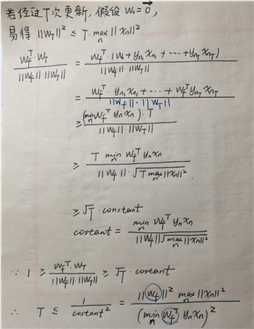 若经过T次更新,假设 w₁=0⃗,
易得 ||w_T||² ≤ T max_n ||x_n||²
w_f^T · w_T / ||w_f|| ||w_T|| = w_f^T (w₁ + y_{n1} x_{n1} + ··· + y_{nT} x_{nT}) / ||w_f|| ||w_T||
= w_f^T y_{n1} x_{n1} + ··· + w_f^T y_{nT} x_{nT} / ||w_f|| · ||w_T||
≥ (min_n w_f^T y_n x_n) · T / ||w_f|| ||w_T||
≥ T min_n w_f^T y_n x_n / ||w_f|| · √(T max_n ||x_n||²)
≥ √T · constant
constant = min_n w_f^T y_n x_n / ||w_f|| √(max_n ||x_n||²)
∵ 1 ≥ w_f^T w_T / ||w_f|| ||w_T|| ≥ √T constant
∴ T ≤ 1 / constant² = ||w_f||² max_n ||x_n||² / (min_n w_f^T y_n x_n)²